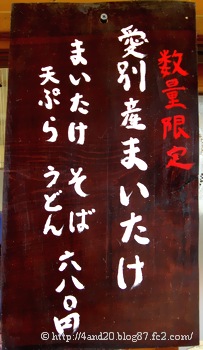 数量限定
愛別産まいたけ
まいたけ そば
天ぷら うどん
六八〇円
© http://4and20.blog87.fc2.com/